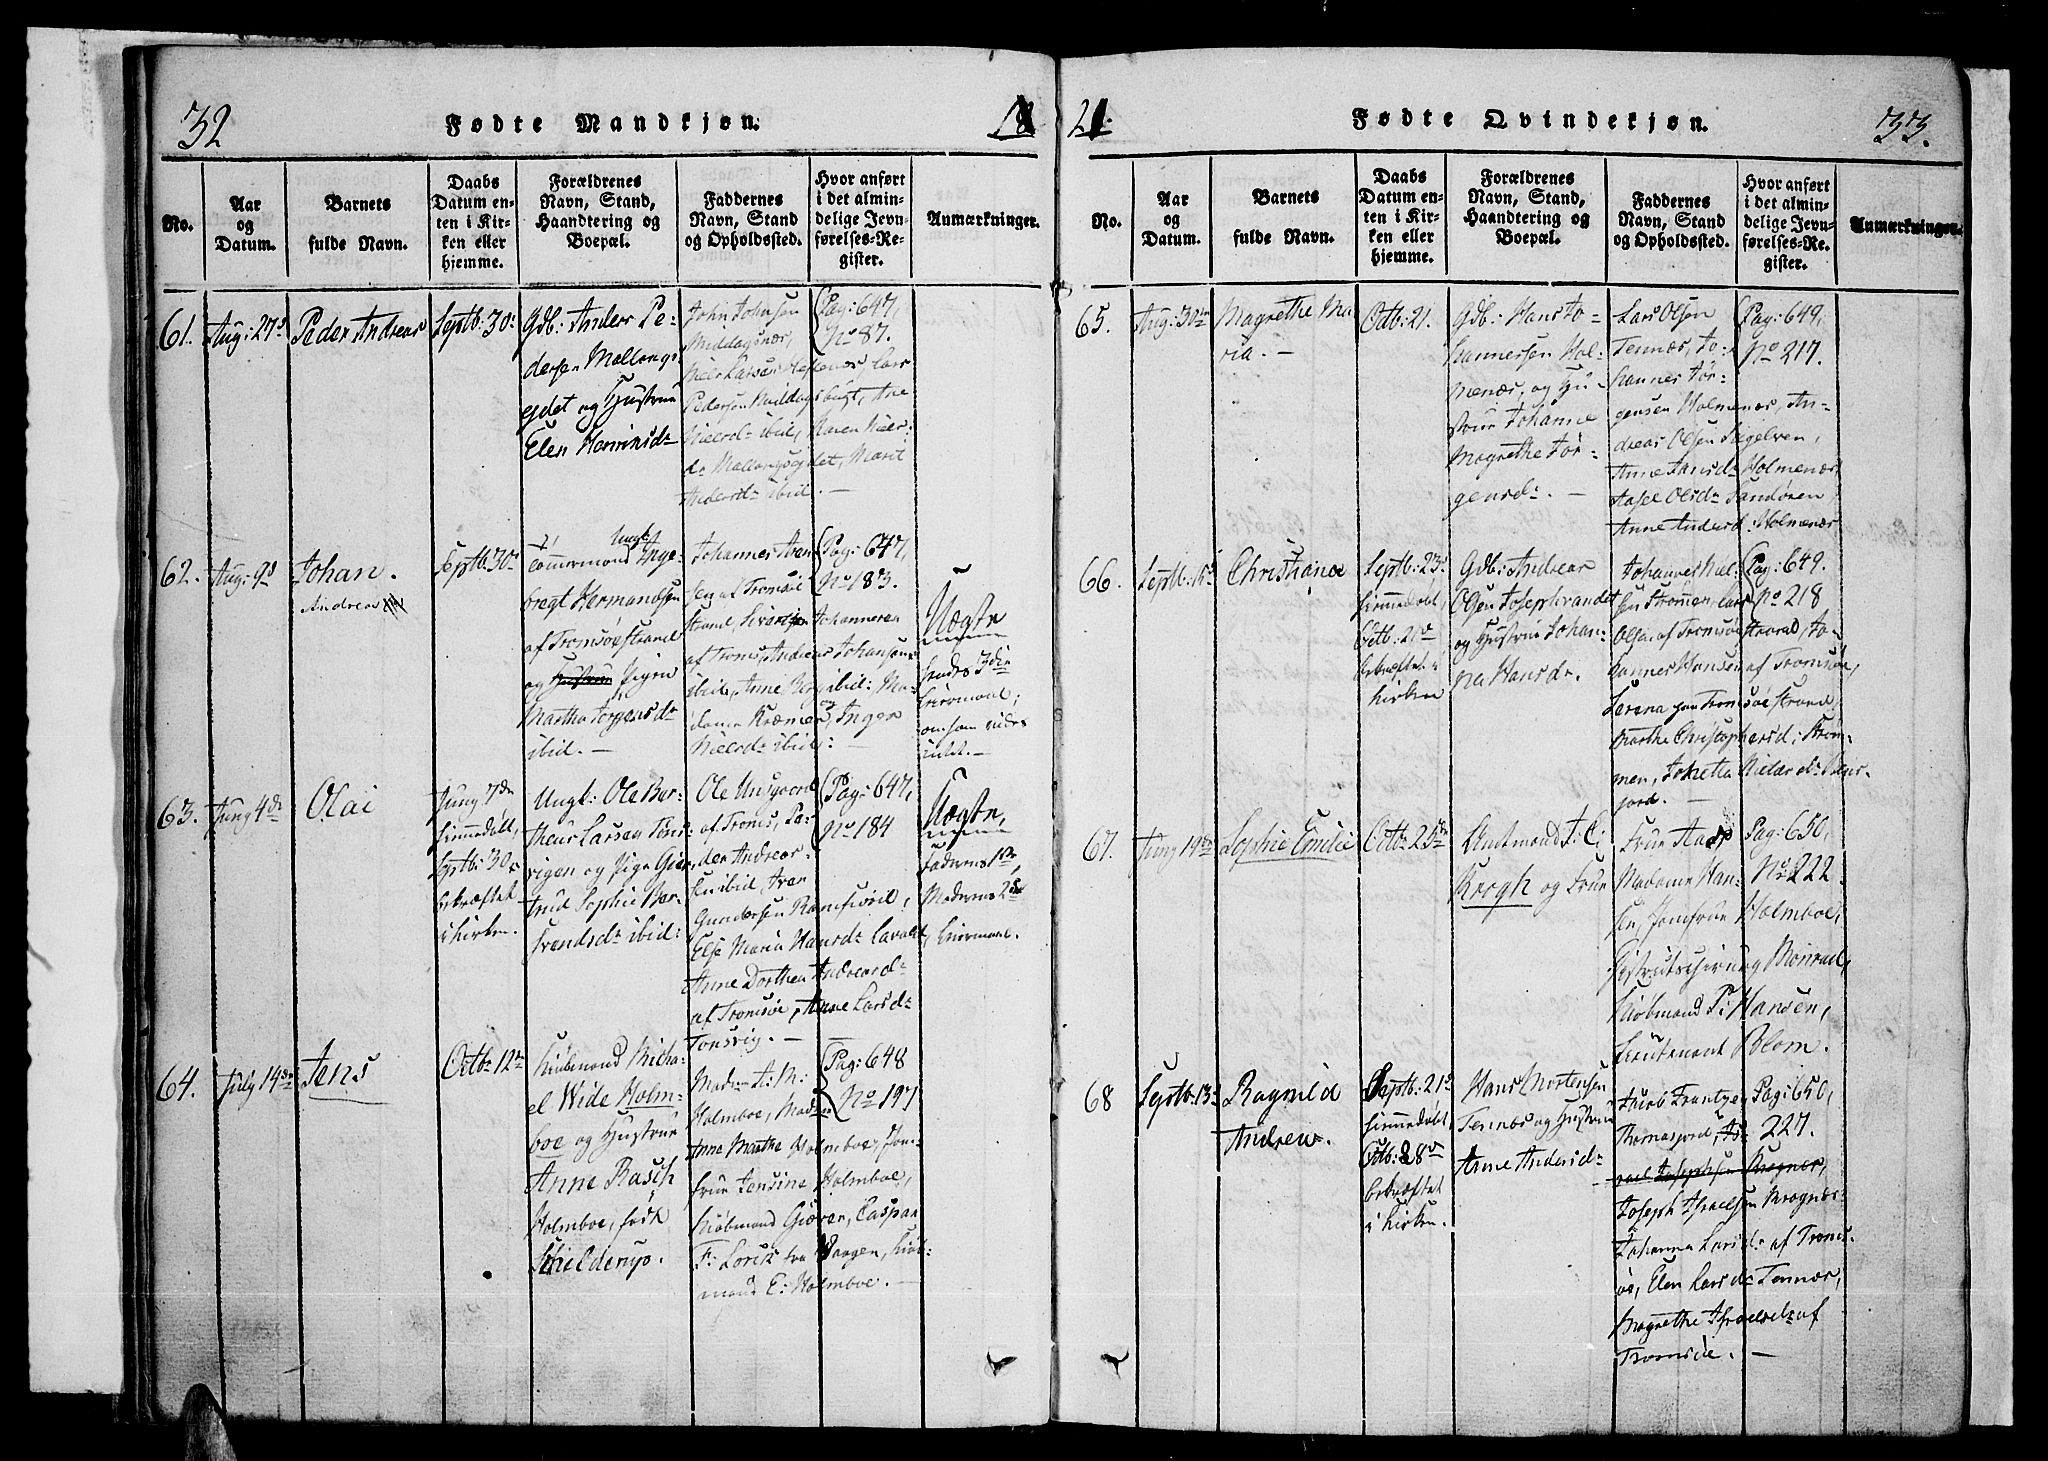 32 Fødte Mandkjøn. 18
No.
Aar
og
Datum.
Barnets
fulde Navn.
Daabs
Datum en-
ten i Kir-
ken eller
hjemme.
Forældrenes
Navn, Stand,
Haandtering og
Boepæl.
Faddernes
Navn, Stand
og Opholdssted.
Hvor anført
i det almin-
delige Jevn-
førelses-Re-
gister.
Anmærkninger.
61. Aug: 27d Peder Andreas Septb: 30d
Gdb: Anders Pe-
dersen Mallangs
ejdet og Hustrue
Elen Henriksdr
John Johnsen
Middagsnæs,
Niels Larsen
Lars
Pedersen Middagsbugt, Ane
Nielsd: ibid, Karen Niels-
dr Mallangsejdet, Marit
Andersdr ibid. —
Pag: 647,
No 87.
62. Aug: 9d Johan.
Andreas
Septb: 30d
Ungk:
Inge-
bregt Hermandsen
af Tromsøestrand
og Hustrue Pigen
Martha Jørgensdr
ibid. —
Johannes Ivar-
sen af Tromsøe
strand, Sivert Johannesen
af Troms, Andreas Johansen
ibid, Anne Berg ibid: Ma-
dame Kræmer, og Inger
Nielsdr ibid: —
Pag: 647,
No 183.
Uægte
3die
Leiermaal;
om som vides
intet. —
63. Juny 4de Olai
Juny 7de
hiemedøbt,
Septb: 30d
bekræftet
i Kirken.
Ungk: Ole Bar-
theus Larsen Tøns-
vigen og Pige Gier-
trud Sophie Ber-
tendsdr ibid.
Ole Unsgaard
af Troms, Pe-
der Andreas-
sen ibid, Ivar
Gundersen Ramfiord,
Else Maria Hansdr
Anne Dorthea Andreasdr
af Tromsøe, Anne Larsdr
Tønsvig. —
Pag: 647,
No 184
Uægte,
Faderens 1ste,
Moderens 2det
Leiermaal.
64. July 14de Jens
Octbr 12te
Kiøbmand Micha-
el Wide Holm-
boe og Hustrue
Anne Rasch
Holmboe, født
Schielderup.
Madam A: M:
Holmboe, Madm
Anne Marthe Holmboe, Jom-
frue Jensine Holmboe,
Kiøbmand Giæver, Caspar
F: Lorck fra Vaagen, Kiøb-
mand C: Holmboe. —
Pag: 648
No 197
21. Fødte Qvindekjøn. 33.
No.
Aar
og
Datum.
Barnets
fulde Navn.
Daabs
Datum en-
ten i Kir-
ken eller
hjemme.
Forældrenes
Navn, Stand,
Haandtering og
Boepæl.
Faddernes
Navn, Stand
og Opholdssted.
Hvor anført
i det almin-
delige Jevn-
førelses-Re-
gister.
Anmærkninger.
65. Aug: 30te Magrethe Ma-
ria. —
Octb: 21.
Gdb: Hans Jo-
hannessen Hol-
menæs, og Hu-
strue Johanne
Magrethe Jør-
gensdr. —
Lars Olsen
Tennæs, Jo-
hannes Jør-
gensen Holmenæs, An-
dreas Olsen Sagelven,
Anne Jansdr Holmenæs,
Aase Olsdr Sandøren
Anne Andersd: Holmenæs
Pag: 649,
No 217.
66. Septb: 15d Christiane
Septb: 23d
hiemmedøbt,
Octb: 21de
bekræftet i
Kirken
Gdb: Andreas
Olsen Josephvandet
og Hustrue Johan-
na Hansdr.
Johannes Niel-
sen Strømen, Lars
Olsen af Tromsøestrand, Jo-
hannes Hansen af Tromsøe,
Serena fra Tromsøestrand,
Marthe Christophersd: Strøm-
men, Johetta
fjord. —
Pag: 649.
No 218
67. Juny 19de Sophie Emilie Octb: 25de
Amtmand J: C:
Krogh og Frue
Frue Aars
Madame Han-
sen, Jomfrue Holmboe,
Distriktschirurg Monrad,
Kiøbmand P: Hansen,
Lieutenant Blom.
Pag: 650,
No 222.
68 Septb: 13d Ragnild
Andrea.
Septb: 21de
hiemmedøbt,
Octb: 28de
bekræftet
i Kirken.
Hans Mortensen
Tennæs og Hustrue
Anne Andersdr
Jacob Frantzen
Thomasjord, Is-
rael Josephsen Kragnæs,
Joseph Israelsen Kragnæs,
Johanna Larsdr af Troms-
øe, Elen Larsdr Tennæs,
Magrethe Israelsdr af
Tromsøe. —
Pag: 650,
227.